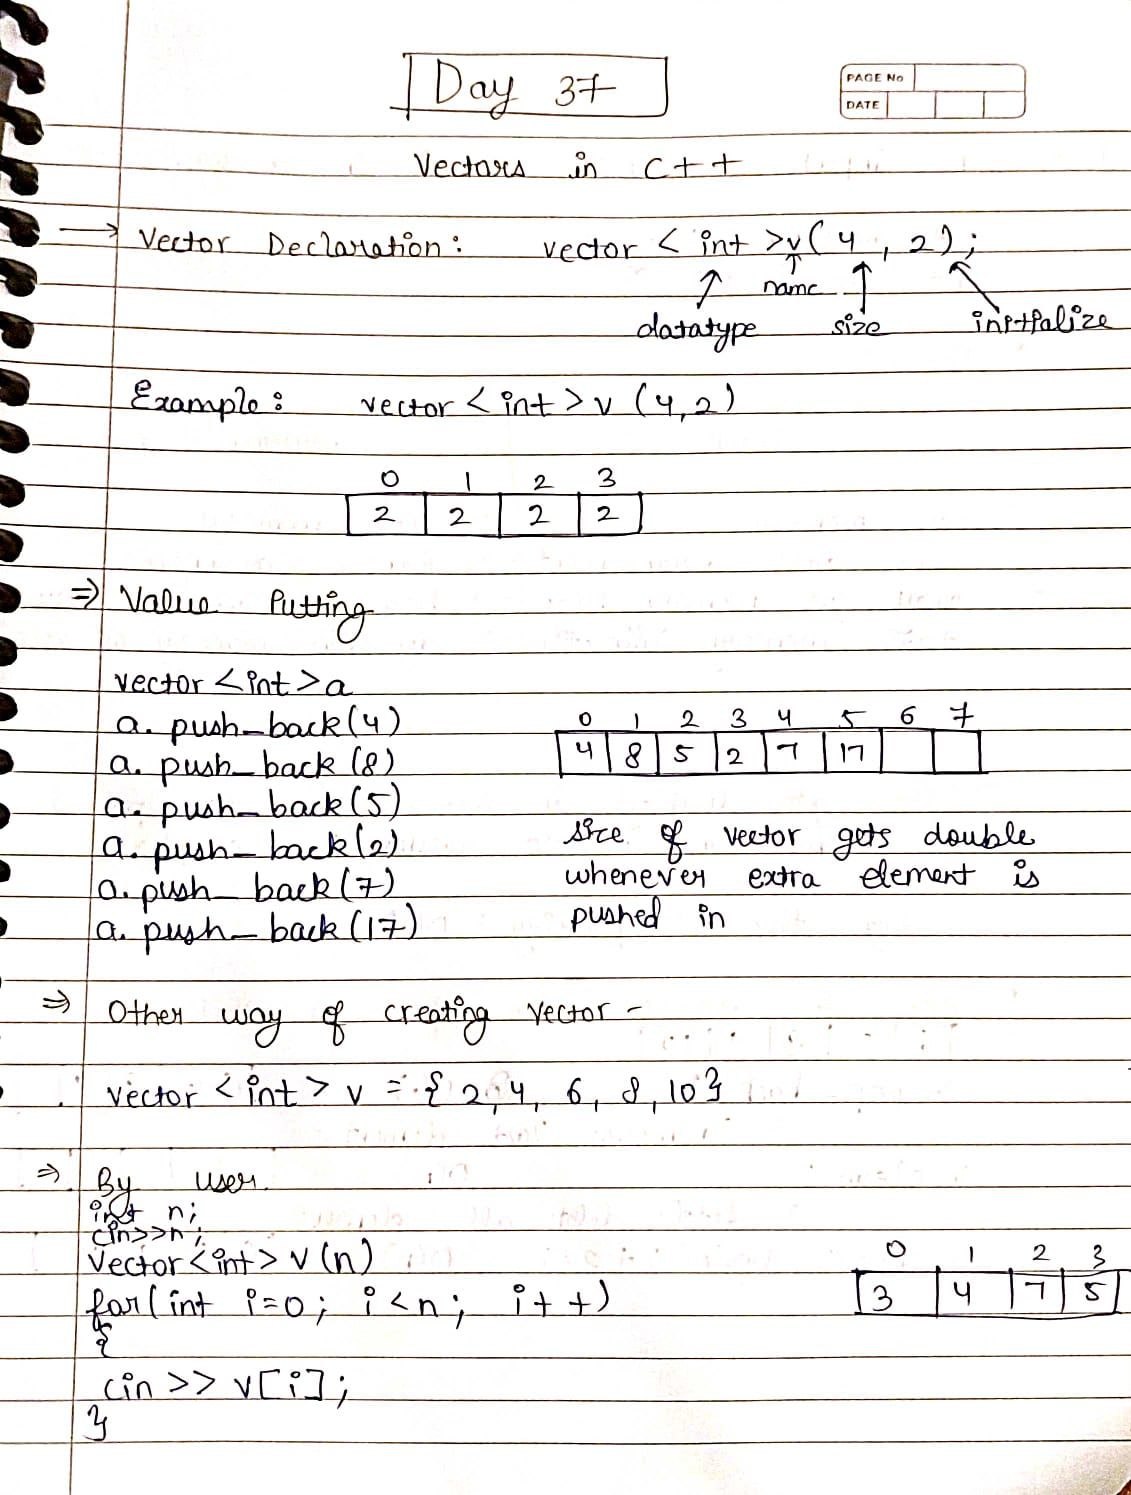 Day 37
PAGE No
DATE
Vectors in C++
→ Vector Declaration: vector <int>v(4, 2);
name
datatype size initialize
Example: vector <int> v (4,2)
0 1 2 3
2 2 2 2
⇒ Value Putting
vector <int>a
a. push_back(4)
a. push_back (8)
a. push_back(5)
a. push_back(2)
a. push_back(7)
a. push_back(17)
0 1 2 3 4 5 6 7
4 8 5 2 7 17
size of vector gets double
whenever extra element is
pushed in
⇒ Other way of creating vector -
vector <int> v = { 2, 4, 6, 8, 10}
⇒ By user.
int n;
cin>>n;
Vector <int> v (n)
for( int i=0; i<n; i++)
{
cin >> v[i];
}
0 1 2 3
3 4 7 5